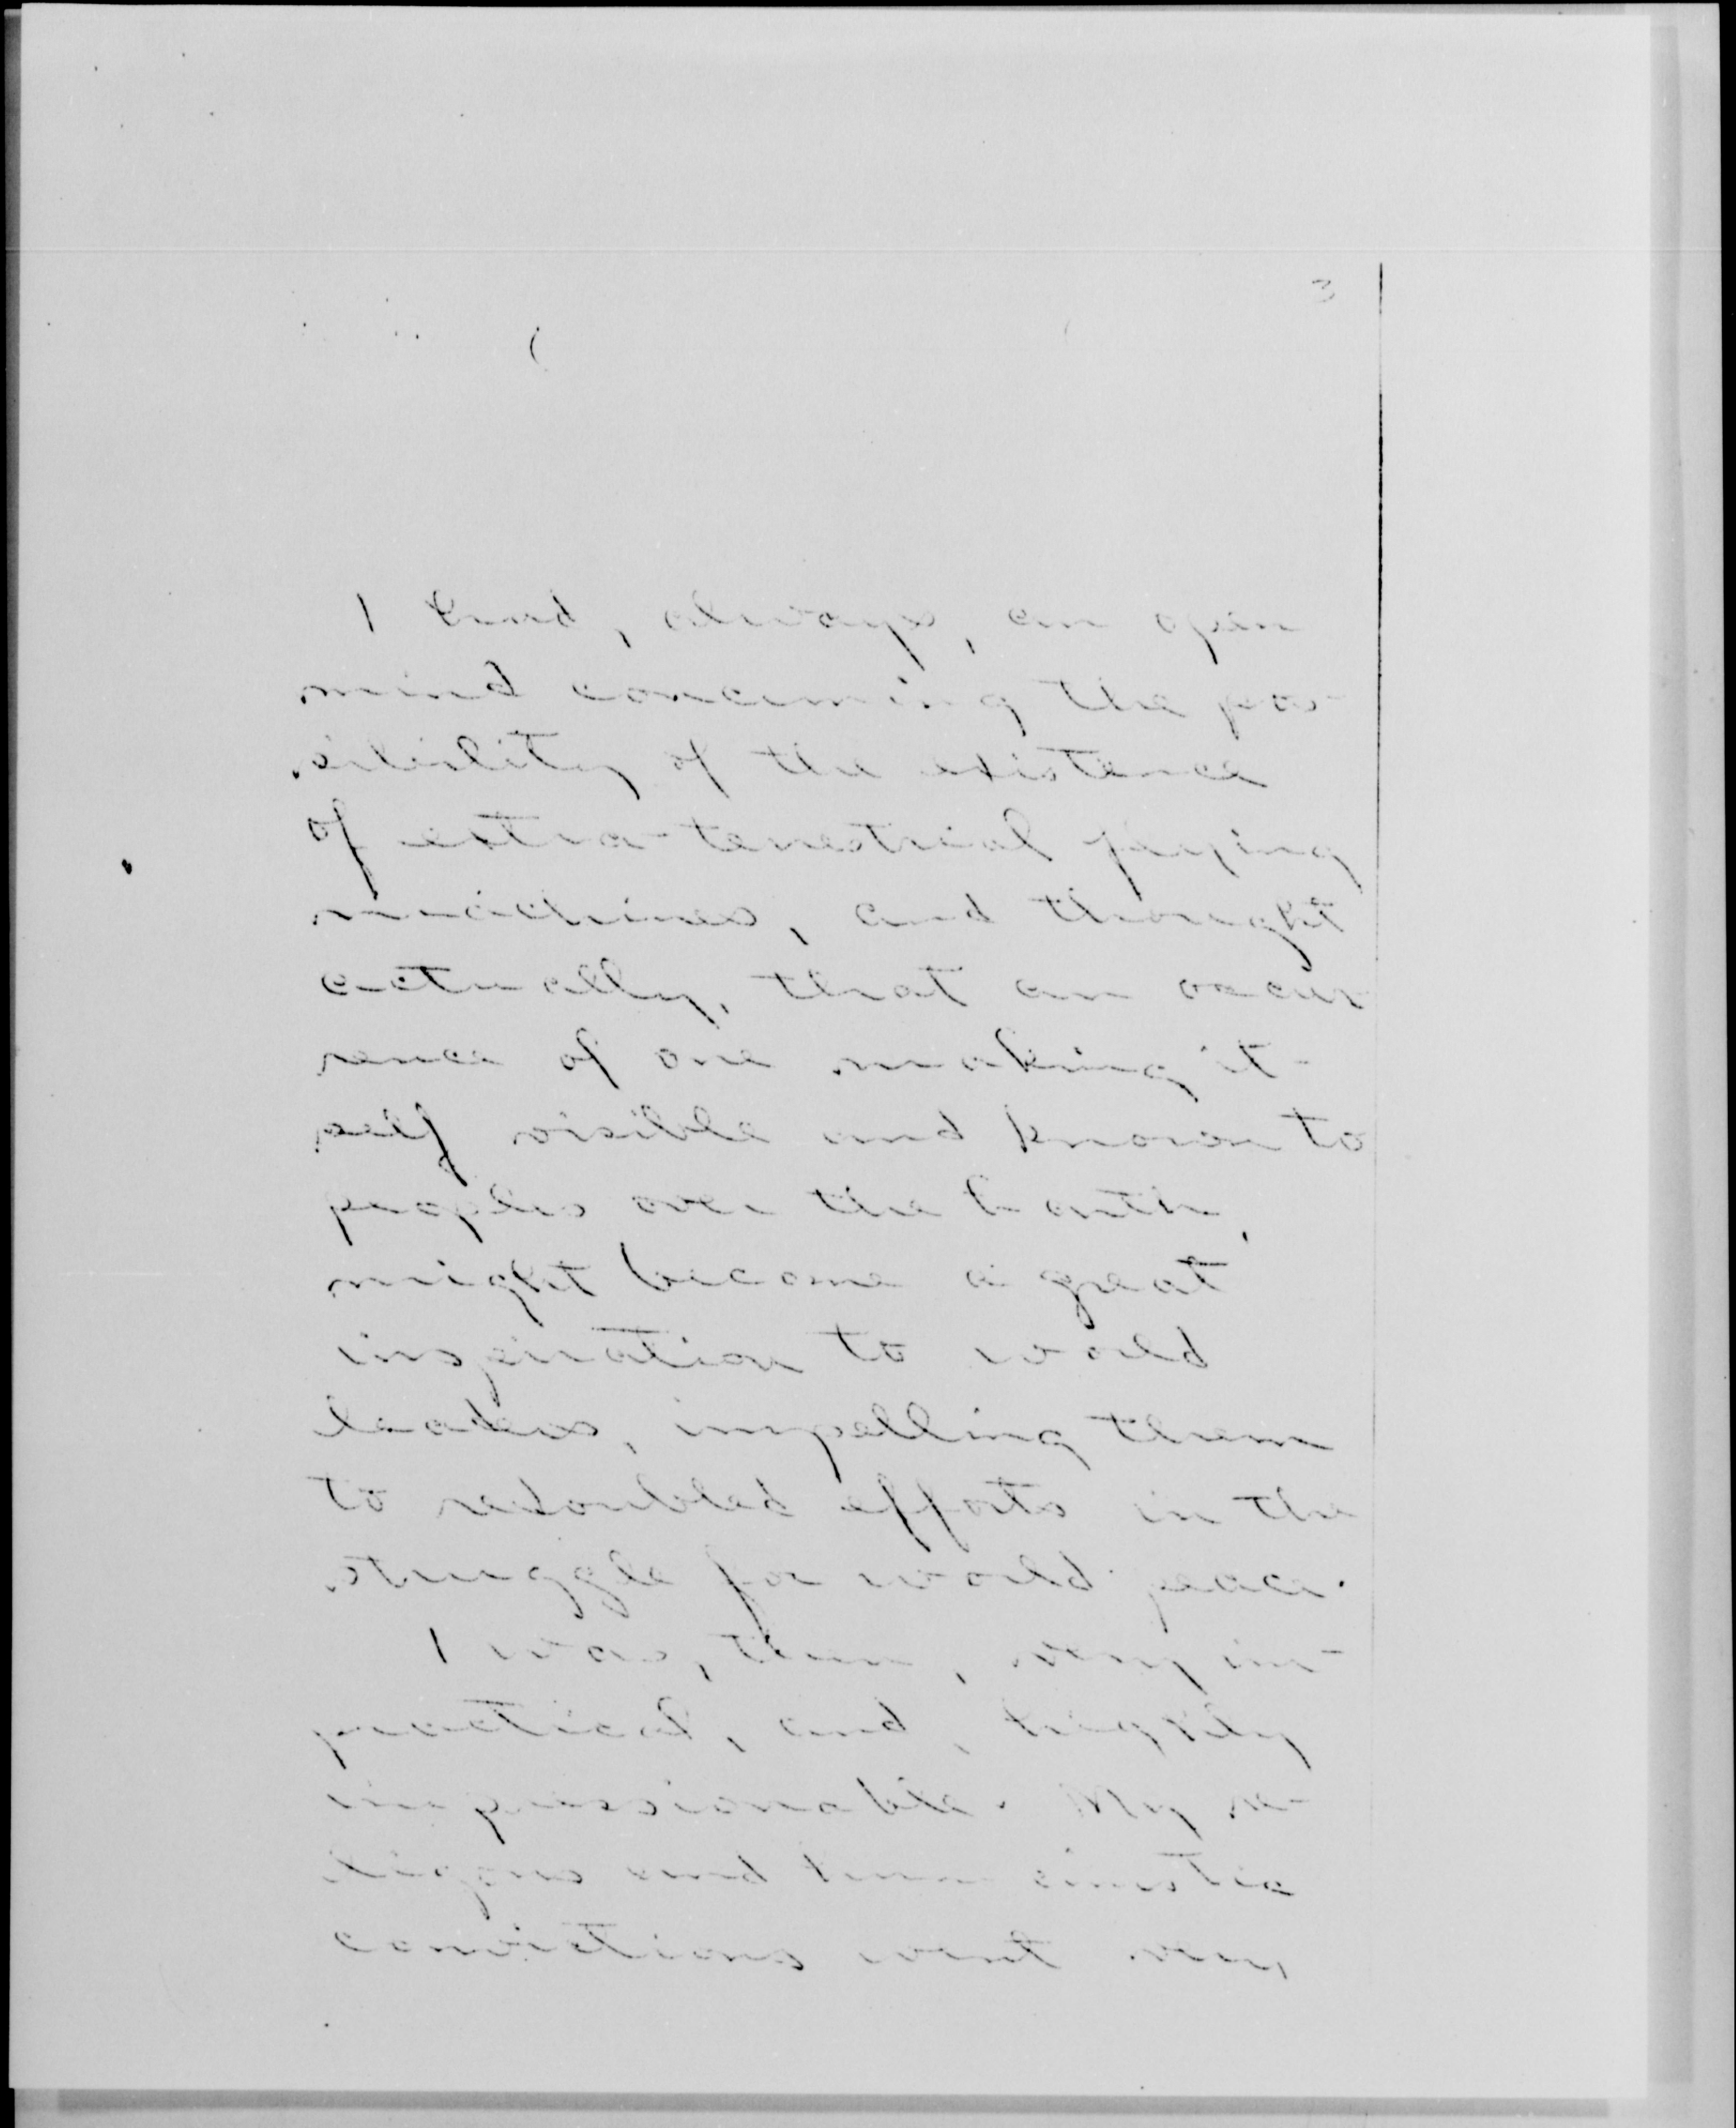 3
I had, always, an open
mind concerning the pos-
sibility of the existence
of extra-terrestrial flying
machines, and thought
actually, that an occur-
rence of one making it-
self visible and known to
peoples over the Earth,
might become a great
inspiration to world
leaders, impelling them
to redoubled efforts in the
struggle for world peace.
I was, then, very im-
practical, and, highly
impressionable. My re-
ligous and humanistic
convictions went very